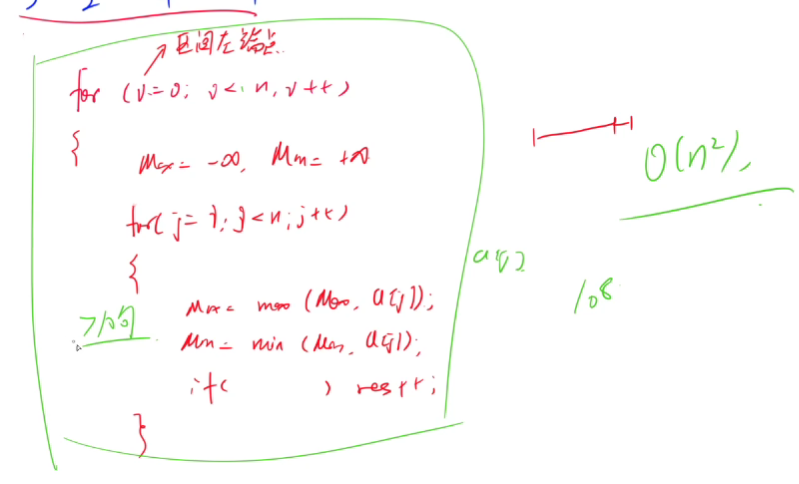 区间左端点
for (i=0; i<n, i++)
{
Max = -∞, Min = +∞
for( j=i; j<n; j++)
{
a[j]
Max = max (Max, a[j]);
Min = min (Min, a[j]);
if( ) res++;
}
O(n²),
10^8